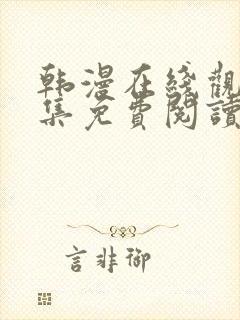 韩漫在綫觀
集免費閱讀
言非御